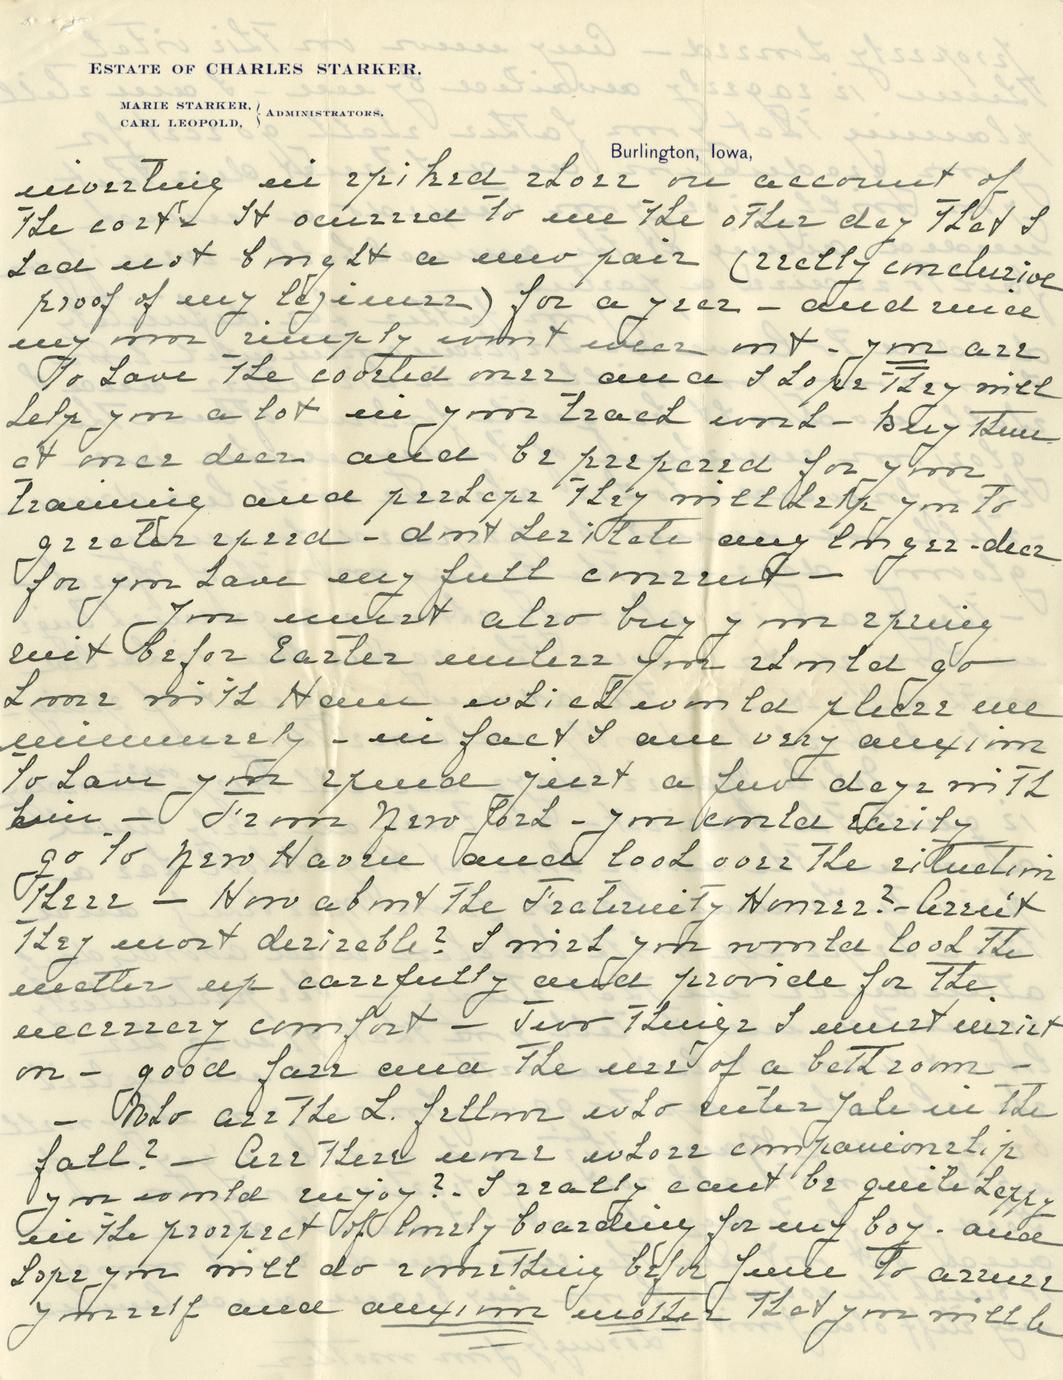 ESTATE OF CHARLES STARKER.
MARIE STARKER,
CARL LEOPOLD,
ADMINISTRATORS.
Burlington, Iowa,
investing in spiked shoes on account of
the cost - It occured to me the other day that I
had not bought a new pair (really conclusive
proof of my laziness) for a year - and since
my own simply wont wear out - you are
to have the coveted ones and I hope they will
help you a lot in your track work - Buy them
at once dear and be prepared for your
training and perhaps they will help you to
greater speed - dont hesitate any longer - dear
for you have my full consent -
You must also buy your spring
suit befor Easter unless you should go
home with Ham which would please me
immensely - in fact I am very anxious
to have you spend just a few days with
him - From New York - you could easily
go to New Haven and look over the situation
there - How about the Fraternity Houses? - Arent
they most desirable? I wish you would look the
matter up carefully and provide for the
necessary comfort - Two things I must insist
on - good fare and the use of a bathroom -
- Who are the L. fellows who enter Yale in the
fall? - Are there some whose companionship
you would enjoy? - I really cant be quite happy
in the prospect of lonely boarding for my boy - and
hope you will do something befor June to assure
yourself and anxious mother that you will be